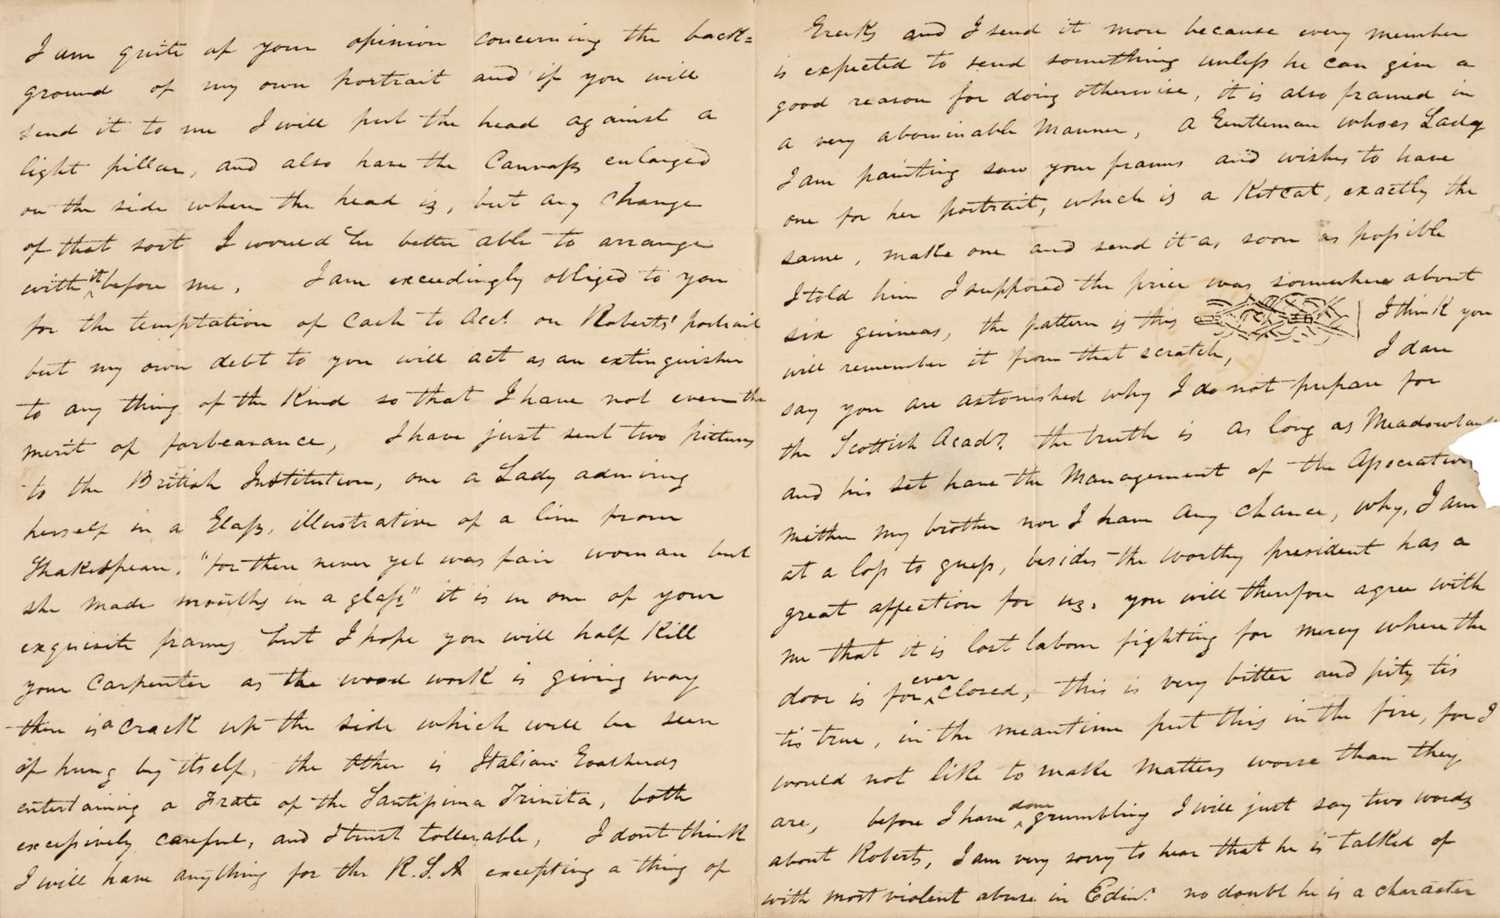 I am quite of your opinion concerning the back=
ground of my own portrait and if you will
send it to me I will put the head against a
light pillar, and also have the Canvass enlarged
on the side where the head is, but any change
of that sort I would be better able to arrange
with it before me. I am exceedingly obliged to you
for the temptation of Cash to Acct. on Roberts' portrait
but my own debt to you will act as an extinguisher
to any thing of the Kind so that I have not even the
merit of forbearance, I have just sent two pictures
to the British Institution, one a Lady admiring
herself in a Glass, illustrative of a line from
Shakespear, "for there never yet was fair woman but
she made mouths in a glass" it is in one of your
exquisite frames but I hope you will half Kill
your Carpenter as the wood work is giving way
there is a crack up the side which will be seen
if hung by itself, the other is Italian Goatherds
entertaining a Frate of the Santissima Trinita, both
excessively careful, and I trust tollerable, I dont think
I will have anything for the R.S.A excepting a thing of
Greeks and I send it more because every member
is expected to send something unless he can give a
good reason for doing otherwise, it is also framed in
a very abominable Manner, A Gentleman whoes Lady
I am painting saw your frames and wishes to have
one for her portrait, which is a Kitcat, exactly the
same, make one and send it as soon as possible
I told him I supposed the price was somewhere about
six guineas, the pattern is this I think you
will remember it from that scratch, I dare
say you are astonished why I do not prepare for
the Scottish Acady. the truth is as long as
and his set have the Management of the Association
neither my brother nor I have any chance, why, I am
at a loss to guess, besides the worthy president has a
great affection for us. you will therefore agree with
me that it is lost labour fighting for mercy where the
door is for ever closed, this is very bitter and pity tis
tis true, in the meantime put this in the fire, for I
would not like to make matters worse than they
are, before I have done grumbling I will just say two words
about Roberts, I am very sorry to hear that he is talked of
with most violent abuse in Edinr. no doubt he is a character